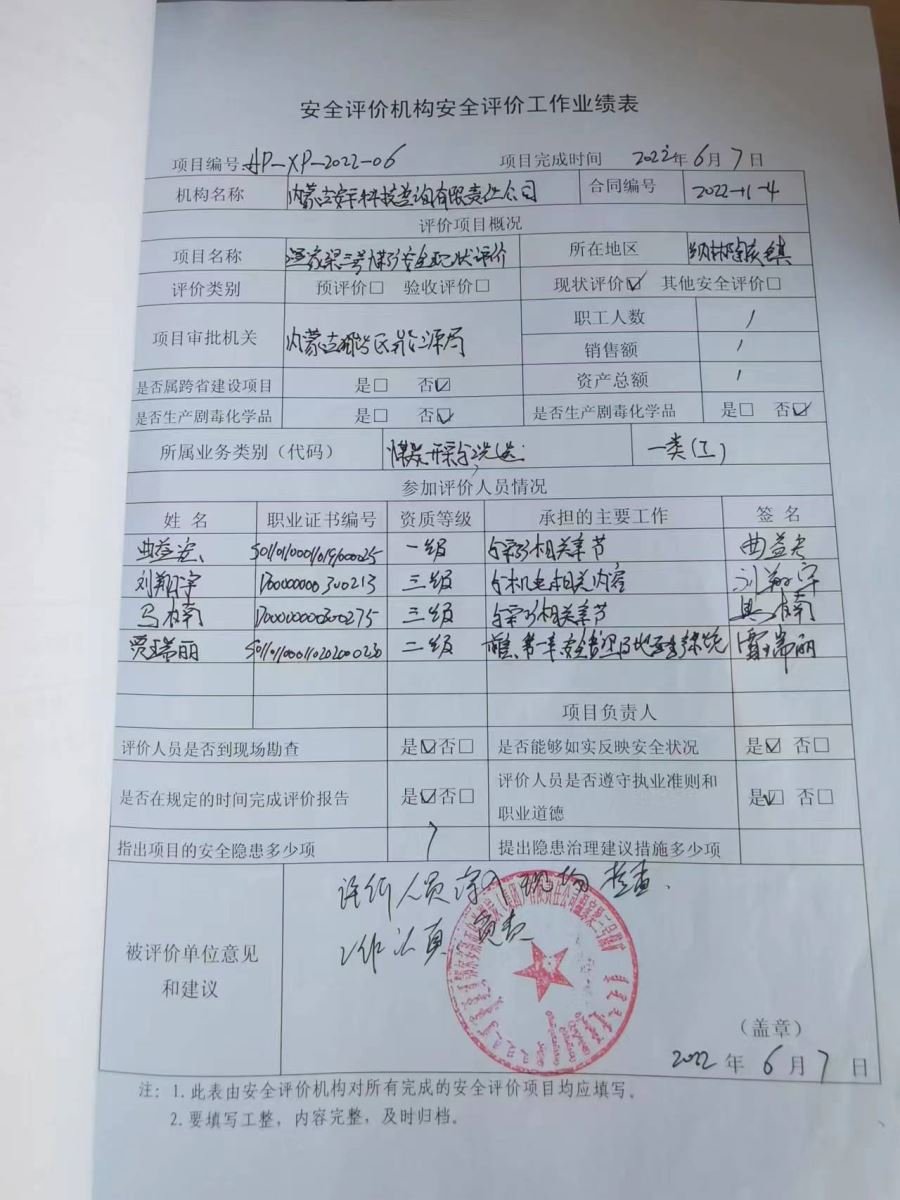 安全评价机构安全评价工作业绩表
项目编号:AP-XP-2022-06 项目完成时间 2022年6月7日
机构名称 内蒙古安科技咨询有限责任公司 合同编号 2022-11-4
评价项目概况
项目名称 温家梁三号煤矿安全现状评价 所在地区 纳林陶亥镇
评价类别 预评价□ 验收评价□ 现状评价☑ 其他安全评价□
项目审批机关 内蒙古自治区能源局 职工人数 /
销售额 /
是否属跨省建设项目 是□ 否☑ 资产总额 /
是否生产剧毒化学品 是□ 否☑ 是否生产剧毒化学品 是□ 否☑
所属业务类别(代码) 煤炭开采和洗选 一类(1)
参加评价人员情况
姓 名 职业证书编号 资质等级 承担的主要工作 签 名
曲益 一级 与采矿相关章节 曲益
刘翔宇 三级 与机电相关内容 刘翔宇
马楠 三级 与采矿相关章节 马楠
贾瑞丽 二级 贾瑞丽
项目负责人
评价人员是否到现场勘查 是☑否□ 是否能够如实反映安全状况 是☑ 否□
是否在规定的时间完成评价报告 是☑否□ 评价人员是否遵守执业准则和
职业道德 是☑ 否□
指出项目的安全隐患多少项 7 提出隐患治理建议措施多少项
被评价单位意见
和建议
评价人员深入现场 检查.
工作认真 负责
(盖章)
2022 年 6 月 7 日
注: 1. 此表由安全评价机构对所有完成的安全评价项目均应填写。
2. 要填写工整, 内容完整, 及时归档。